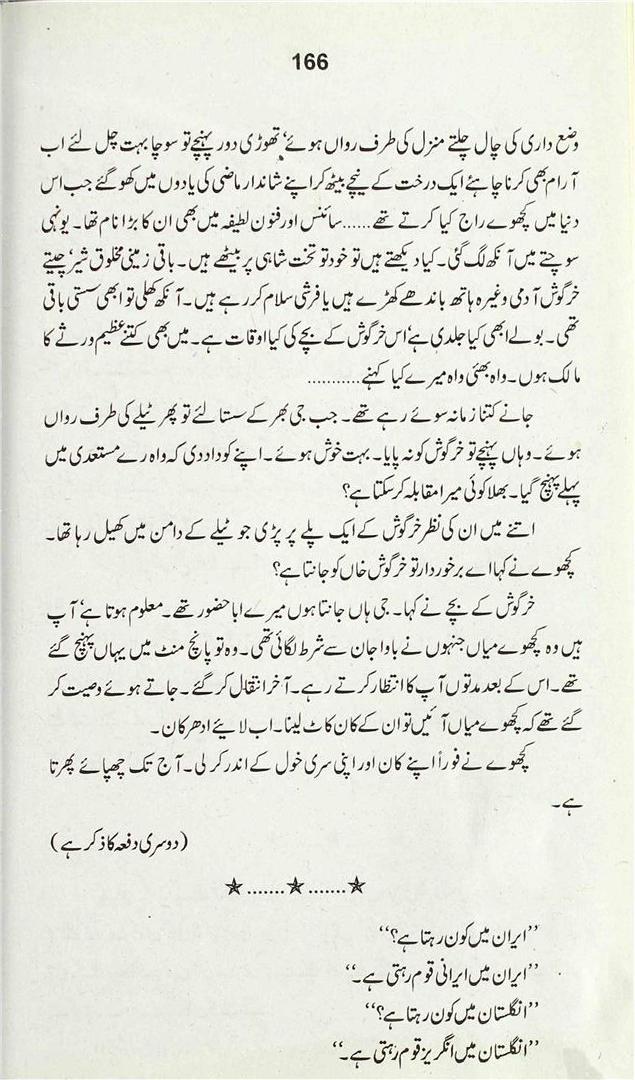 166
وضع داری کی چال چلتے منزل کی طرف رواں ہوئے‘ تھوڑی دور پہنچے تو سوچا بہت چل لئے اب
آرام بھی کرنا چاہئے ایک درخت کے نیچے بیٹھ کر اپنے شاندار ماضی کی یادوں میں کھو گئے جب اس
دنیا میں کچھوے راج کیا کرتے تھے......سائنس اور فنون لطیفہ میں بھی ان کا بڑا نام تھا۔ یونہی
سوچتے میں آنکھ لگ گئی۔ کیا دیکھتے ہیں تو خود تو تخت شاہی پر بیٹھے ہیں۔ باقی زمینی مخلوق شیر‘ چیتے
خرگوش آدمی وغیرہ ہاتھ باندھے کھڑے ہیں یا فرشی سلام کر رہے ہیں۔ آنکھ کھلی تو ابھی سستی باقی
تھی۔ بولے ابھی کیا جلدی ہے‘ اس خرگوش کے بچے کی کیا اوقات ہے۔ میں بھی کتنے عظیم ورثے کا
مالک ہوں۔ واہ بھئی واہ میرے کیا کہنے...........
جانے کتنا زمانہ سوئے رہے تھے۔ جب جی بھر کے سستا لئے تو پھر ٹیلے کی طرف رواں
ہوئے۔ وہاں پہنچے تو خرگوش کو نہ پایا۔ بہت خوش ہوئے۔ اپنے کو داد دی کہ واہ رے مستعدی میں
پہلے پہنچ گیا۔ بھلا کوئی میرا مقابلہ کر سکتا ہے؟
اتنے میں ان کی نظر خرگوش کے ایک پلے پر پڑی جو ٹیلے کے دامن میں کھیل رہا تھا۔
کچھوے نے کہا اے برخوردار تو خرگوش خاں کو جانتا ہے؟
خرگوش کے بچے نے کہا۔ جی ہاں جانتا ہوں میرے ابا حضور تھے۔ معلوم ہوتا ہے‘ آپ
ہیں وہ کچھوے میاں جنہوں نے باوا جان سے شرط لگائی تھی۔ وہ تو پانچ منٹ میں یہاں پہنچ گئے
تھے۔ اس کے بعد مدتوں آپ کا انتظار کرتے رہے۔ آخر انتقال کر گئے۔ جاتے ہوئے وصیت کر
گئے تھے کہ کچھوے میاں آئیں تو ان کے کان کاٹ لینا۔ اب لایئے ادھر کان۔
کچھوے نے فوراً اپنے کان اور اپنی سری خول کے اندر کر لی۔ آج تک چھپائے پھرتا
ہے۔
(دوسری دفعہ کا ذکر ہے)
☆.......☆.......☆
’’ایران میں کون رہتا ہے؟‘‘
’’ایران میں ایرانی قوم رہتی ہے۔‘‘
’’انگلستان میں کون رہتا ہے؟‘‘
’’انگلستان میں انگریز قوم رہتی ہے۔‘‘